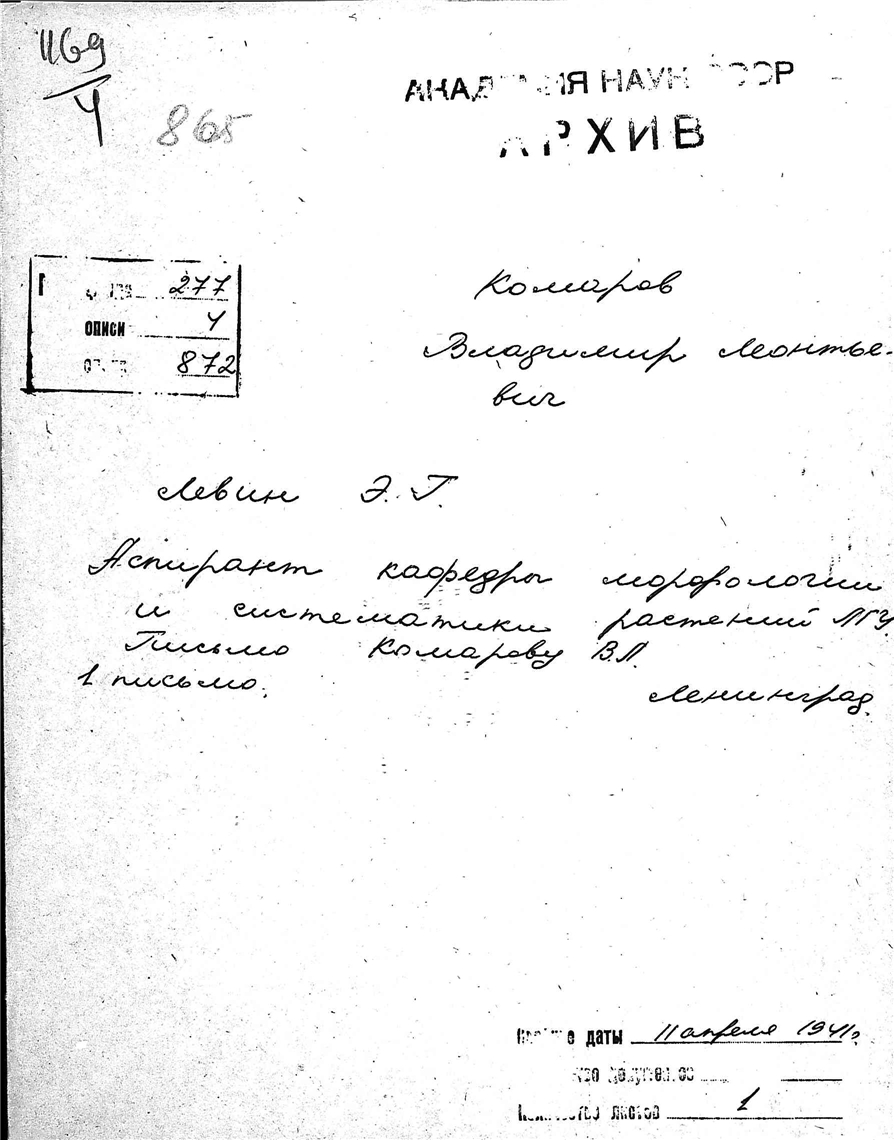 1169
4
865
АКАДЕМИЯ НАУК СССР
АРХИВ
фонда 277
описи 4
872
Комаров
Владимир Леонтье-
вич
Левин Э. Г.
Аспирант кафедры морфологии
и систематики растений ЛГУ.
Письмо Комарову В.Л.
1 письмо.
Ленинград.
Крайние даты 11 апреля 1941г.
Количество документов
Количество листов 1